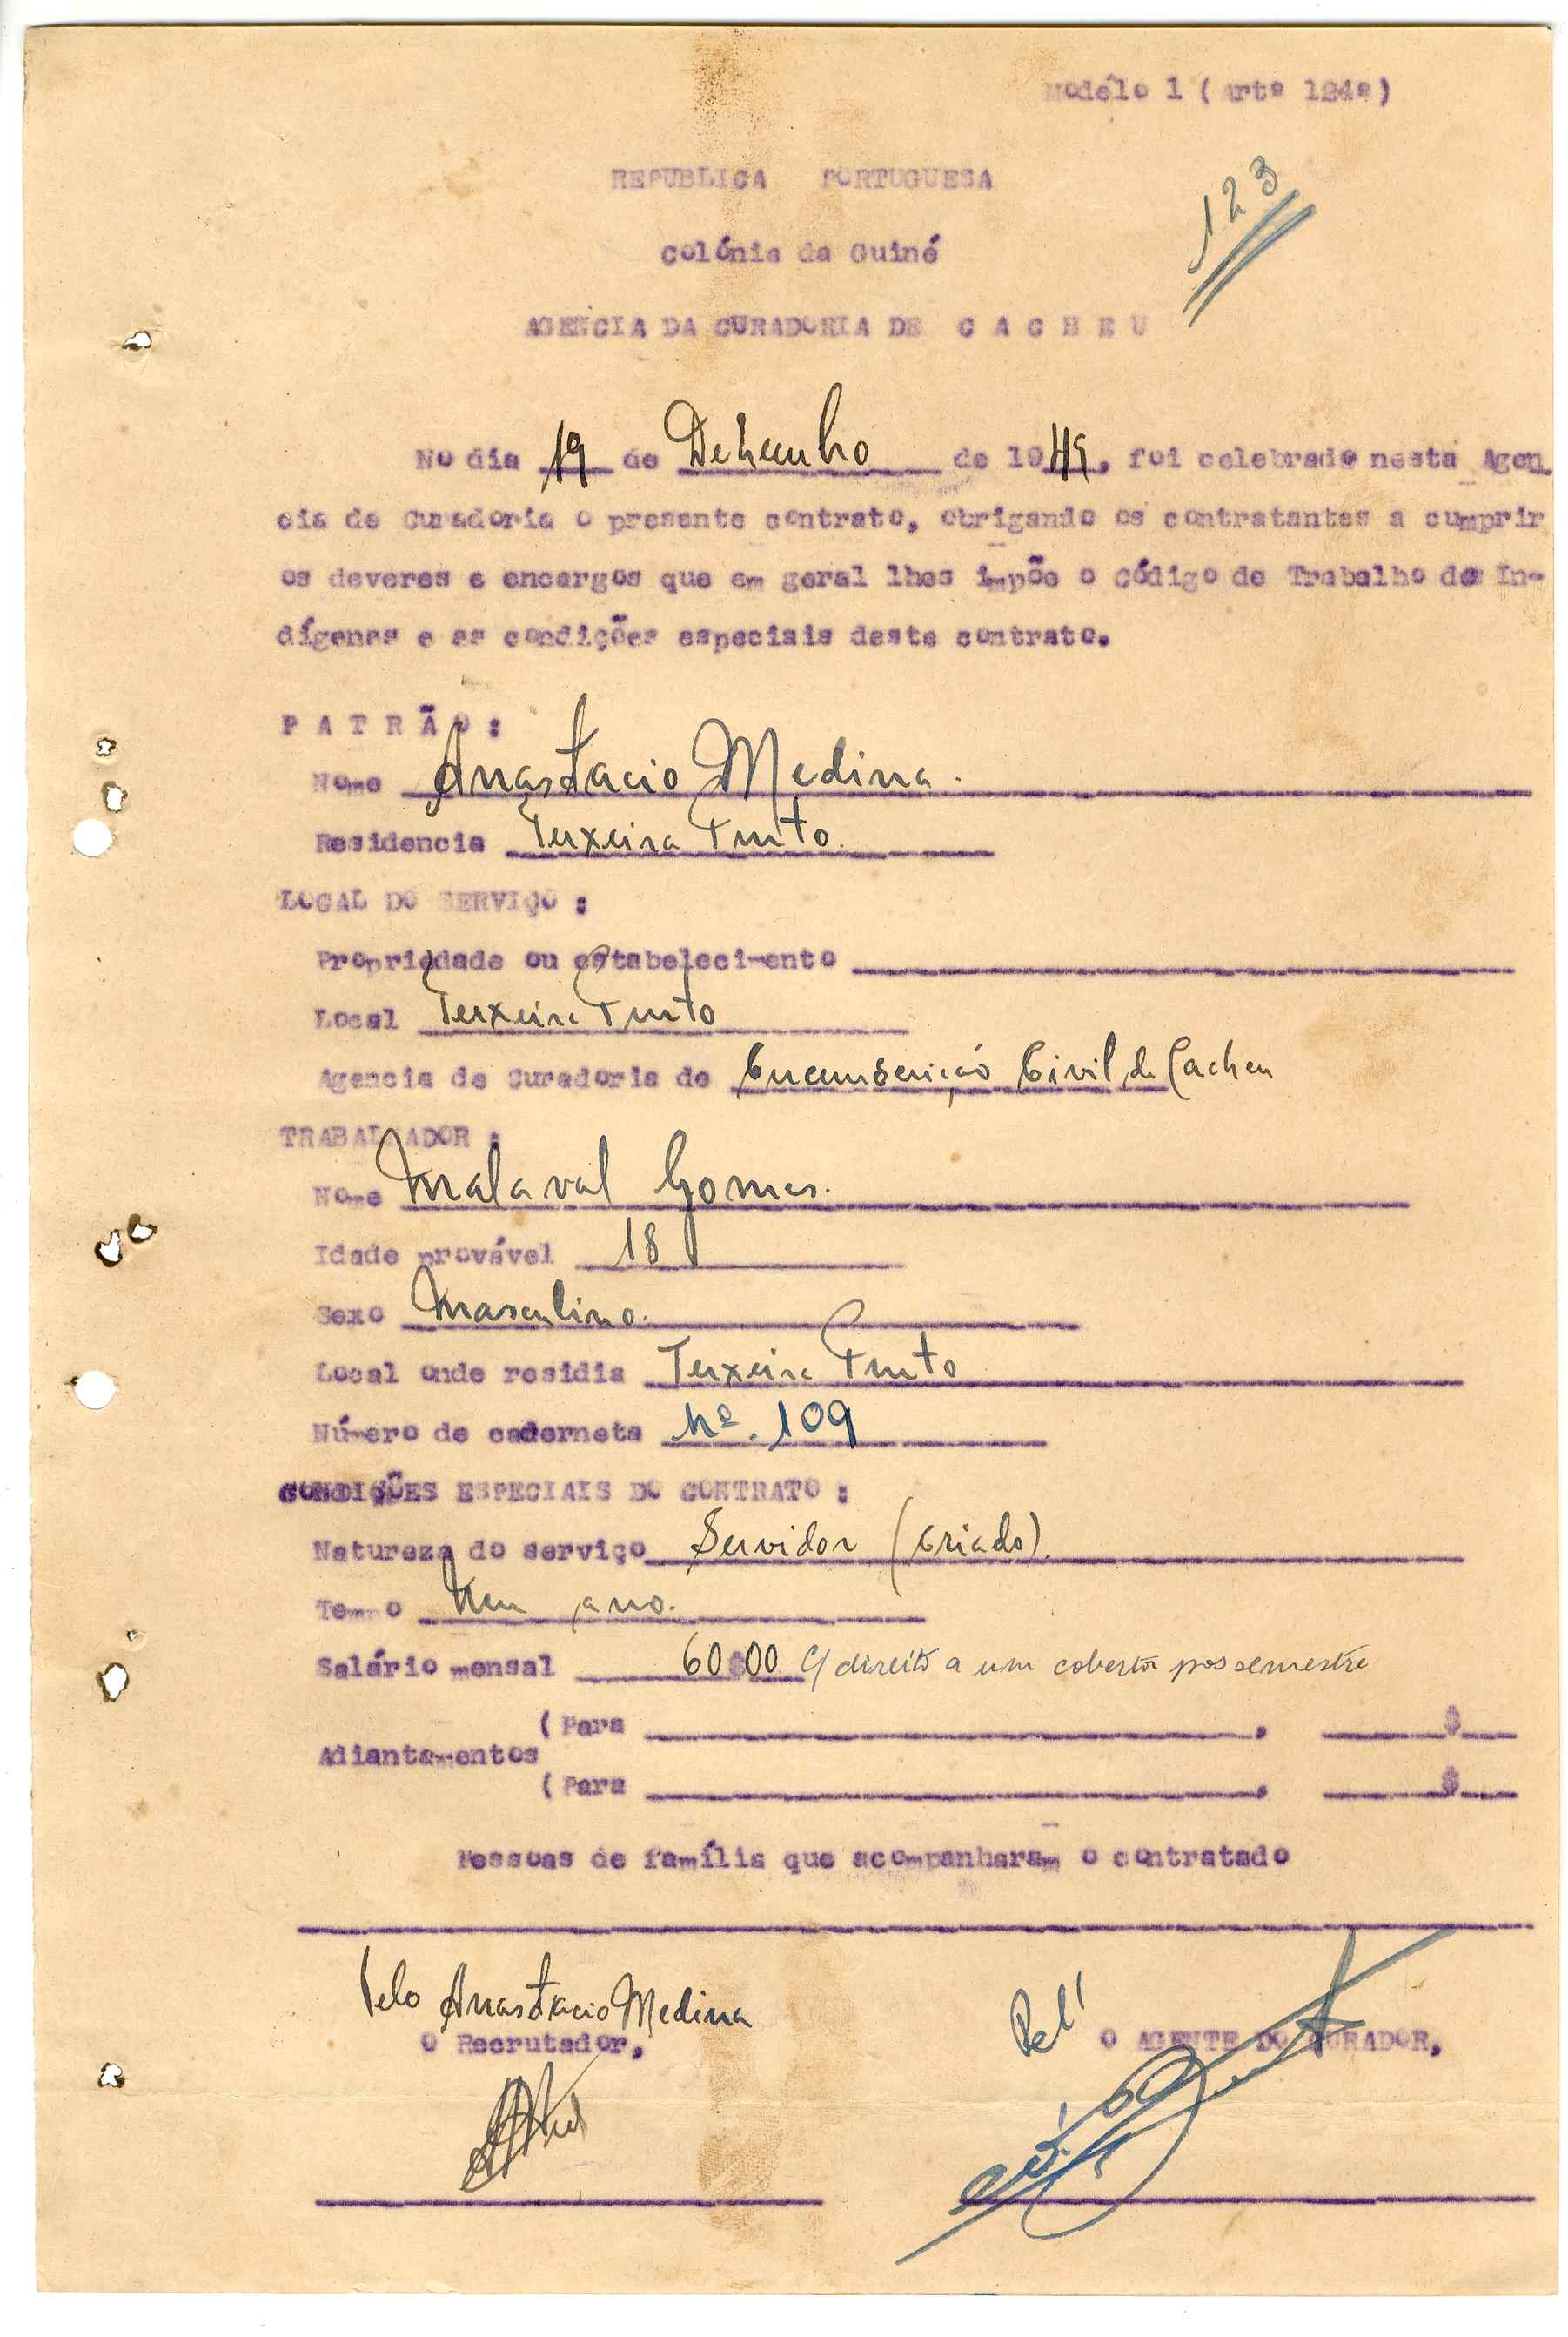 Modélo 1 (Artº 124º)
123
REPUBLICA PORTUGUESA
Colónia da Guiné
AGENCIA DA CURADORIA DE C A C H E U
No dia 19 de Dezembro de 1949, foi celebrado nesta Agen
cia de Curadoria o presente contrato, obrigando os contratantes a cumprir
os deveres e encargos que em geral lhes impõe o Código de Trabalho dos In-
dígenas e as condições especiais deste contrato.
P A T R Ã O :
Nome Anastacio Medina.
Residencia Teixeira Pinto.
LOCAL DO SERVIÇO :
Propriedade ou estabelecimento
Local Teixeira Pinto
Agencia de Curadoria de Circunscrição Civil de Cacheu
TRABALHADOR :
Nome Malaval Gomes.
Idade provável 18
Sexo Masculino.
Local onde residia Teixeira Pinto
Número de caderneta Nº. 109
CONDIÇÕES ESPECIAIS DO CONTRATO :
Natureza do serviço Servidor (criado).
Tempo Um ano.
Salário mensal 60$00 c/ direito a um coberta por semestre
(Para , $
Adiantamentos
(Para , $
Pessoas de família que acompanharam o contratado
Pelo Anastacio Medina
O Recrutador,
Pel'
O AGENTE DO CURADOR,